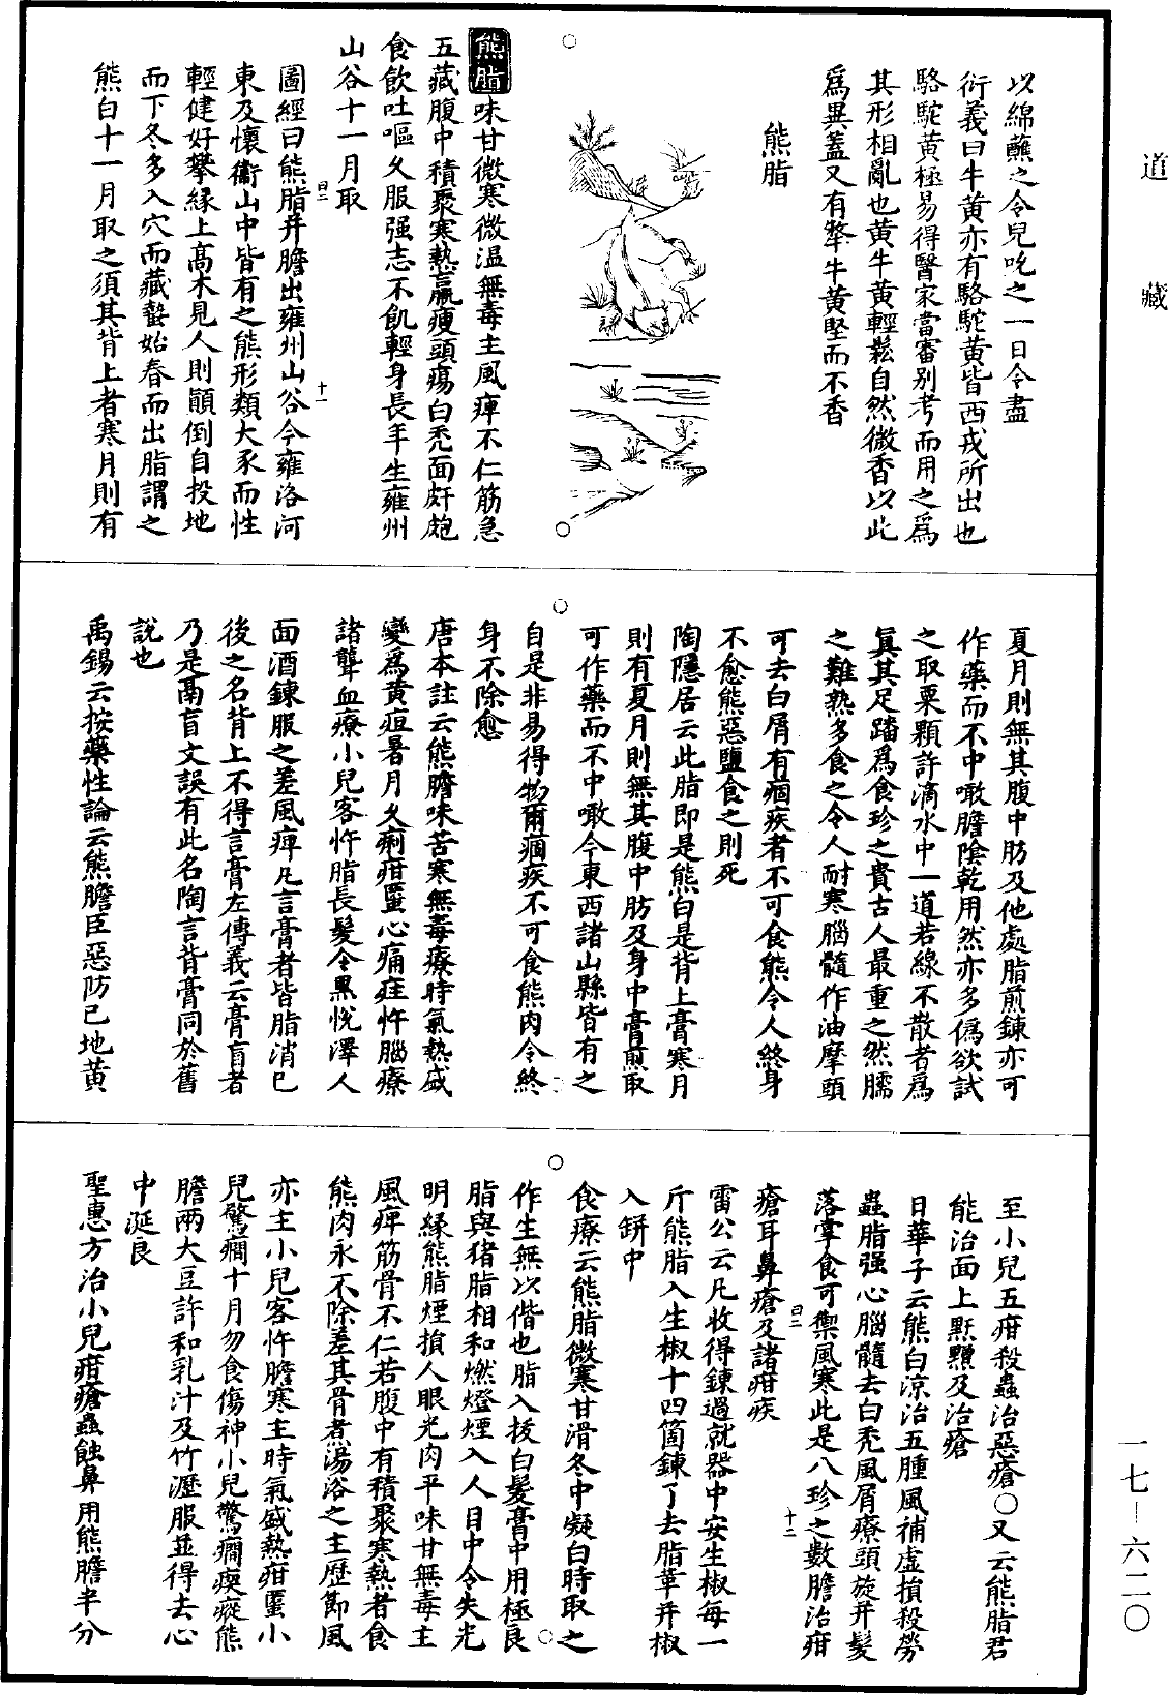 道藏
以綿蘸之令兒吮之一日令盡
衍義曰牛黃亦有駱駝黃皆西戎所出也
駱駝黃極易得醫家當審別考而用之爲
其形相亂也黃牛黃輕鬆自然微香以此
爲異蓋又有犛牛黃堅而不香
熊脂
熊脂味甘微寒微温無毒主風痺不仁筋急
五藏腹中積聚寒熱羸瘦頭瘍白禿面皯皰
食飲吐嘔久服强志不飢輕身長年生雍州
山谷十一月取
圖經曰熊脂并膽出雍州山谷今雍洛河
曰二
十一
東及懷衞山中皆有之熊形類大豕而性
輕健好攀緣上高木見人則顛倒自投地
而下冬多入穴而藏蟄始春而出脂謂之
熊白十一月取之須其背上者寒月則有
夏月則無其腹中肪及他處脂煎鍊亦可
作藥而不中噉膽陰乾用然亦多僞欲試
之取粟顆許滴水中一道若線不散者爲
真其足蹯爲食珍之貴古人最重之然臑
之難熟多食之令人耐寒腦髓作油摩頭
可去白屑有痼疾者不可食熊令人終身
不愈熊惡鹽食之則死
陶隱居云此脂即是熊白是背上膏寒月
則有夏月則無其腹中肪及身中膏煎取
可作藥而不中噉今東西諸山縣皆有之
自是非易得物爾痼疾不可食熊肉令終
身不除愈
唐本註云熊膽味苦寒無毒療時氣熱盛
變爲黃疸暑月久痢疳䘌心痛疰忤腦療
諸聾血療小兒客忤脂長髮令黑悅澤人
面酒鍊服之差風痺凡言膏者皆脂消已
後之名背上不得言膏左傳義云膏肓者
乃是鬲盲文誤有此名陶言背膏同於舊
說也
禹錫云按藥性論云熊膽臣惡防已地黃
至小兒五疳殺蟲治惡瘡○又云熊脂君
能治面上䵟𪒰及治瘡
日華子云熊白涼治五腫風補虛損殺勞
蟲脂强心腦髓去白禿風屑療頭旋并髮
落掌食可禦風寒此是八珍之數膽治疳
瘡耳鼻瘡及諸疳疾
曰二
十二
雷公云凡收得鍊過就器中安生椒每一
斤熊脂入生椒十四箇鍊了去脂革并椒
入缾中
食療云熊脂微寒甘滑冬中凝白時取之
作生無以偕也脂入拔白髮膏中用極良
脂與猪脂相和燃燈煙入人目中令失光
明緣熊脂煙損人眼光肉平味甘無毒主
風痺筋骨不仁若腹中有積聚寒熱者食
熊肉永不除差其骨煮湯浴之主歷節風
亦主小兒客忤膽寒主時氣盛熱疳䘌小
兒驚癇十月勿食傷神小兒驚癇瘈瘲熊
膽兩大豆許和乳汁及竹瀝服並得去心
中涎良
聖惠方治小兒疳瘡蟲蝕鼻用熊膽半分
一七–六二〇